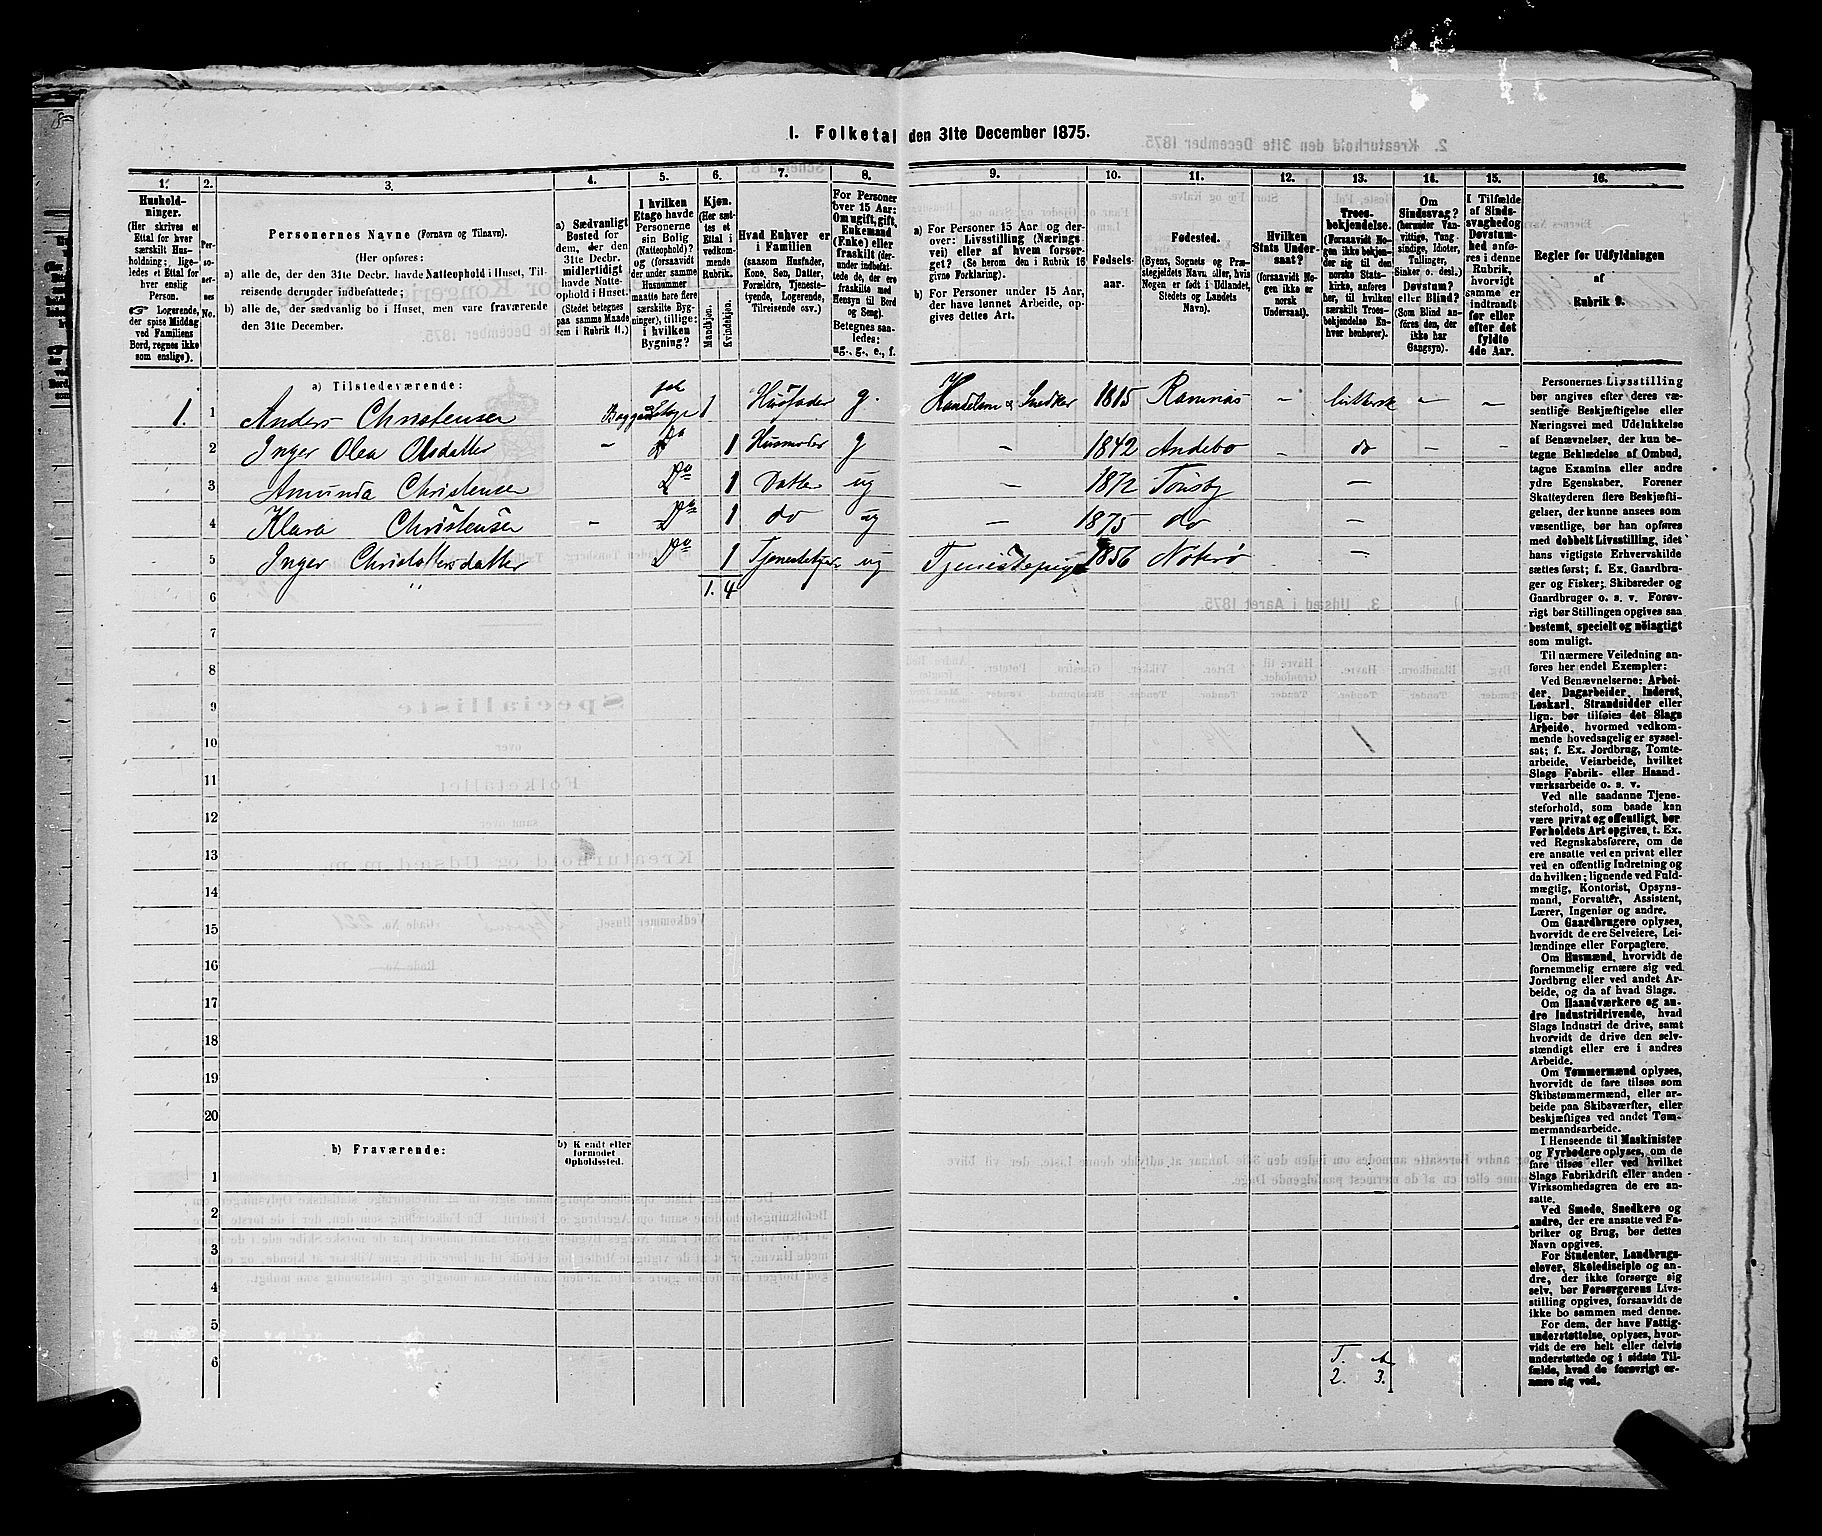 1. Folketal den 31te December 1875.
1.
Hushold-
ninger.
(Her skrives et
Ettal for hver
særskilt Hus-
holdning; lige-
ledes et Ettal for
hver enslig
Person.
Logerende,
der spise Middag
ved Familiens
Bord, regnes ikke
som enslige).
2.
Per-
so-
ner-
nes
No.
3.
Personernes Navne (Fornavn og Tilnavn).
(Her opføres:
a) alle de, der den 31te Decbr. havde Natteophold i Huset, Til-
reisende derunder indbefattede;
b) alle de, der sædvanlig bo i Huset, men vare fraværende
den 31te December.
4.
a) Sædvanligt
Bosted for
dem, der den
31te Decbr.
midlertidigt
havde Natte-
ophold i Huset.
(Stedet betegnes
paa samme Maade
som i Rubrik 11.)
5.
I hvilken
Etage havde
Personerne
sin Bolig
(Natteophold)?
og (forsaavidt
der under samme
Husnummer
maatte høre flere
særskilte Byg-
ninger), tillige:
i hvilken
Bygning?
6.
Kjøn.
(Her sæt-
tes et
Ettal i
vedkom-
mende
Rubrik.
Mandkjøn.
Kvindekjøn.
7.
Hvad Enhver er
i Familien
(saasom Husfader,
Kone, Søn, Datter,
Forældre, Tjeneste-
tyende, Logerende,
Tilreisende osv.)
8.
For Personer
over 15 Aar:
Om ugift, gift,
Enkemand
(Enke) eller
fraskilt (der-
under indbefat-
tede de, der ere
fraskilte med
Hensyn til Bord
og Seng).
Betegnes saa-
ledes:
ug., g., e., f.
9.
a) For Personer 15 Aar og der-
over: Livsstilling (Nærings-
vei) eller af hvem forsør-
get? (Se herom den i Rubrik 16
givne Forklaring).
b) For Personer under 15 Aar,
der have lønnet Arbeide, op-
gives dettes Art.
10.
Fødsels-
aar.
11.
Fødested.
(Byens, Sognets og Præ-
stegjeldets Navn eller, hvis
Nogen er født i Udlandet,
Stedets og Landets
Navn).
12.
Hvilken
Stats Under-
saat?
(forsaavidt No-
gen ikke er
norsk
Undersaat).
13.
Troes-
bekjendelse.
(Forsaavidt No-
gen ikke bekjen-
der sig til den
norske Stats-
kirke, anføres
her, til hvilken
særskilt Troes-
bekjendelse En-
hver henhører).
14.
Om
Sindssvag?
(herunder Van-
vittige, Tung-
sindige, Idioter,
Tullinger,
Sinker o. desl.)
Døvstum?
eller Blind?
(Som Blind an-
føres den, der
ikke har
Gangsyn).
15.
I Tilfælde
af Sinds-
svaghed og
Døvstum-
hed anfø-
res i denne
Rubrik,
hvorvidt
samme er
indtraadt
før eller
efter det
fyldte
4de Aar.
16.
Regler for Udfyldningen
af
Rubrik 9.
a) Tilstedeværende:
1. 1 Anders Christensen 1 Husfader g. Handelsm & Snedker 1815 Ramnæs - luthersk - -
2 Inger Olea Olsdatter - Do 1 Husmoder g - 1842 Andebo - do - -
3 Amunda Christensen Do 1 Datter ug - 1872 Tønsbg -
4 Klara Christensen - Do 1 do ug - 1875 do - -
5 Inger Christoffersdatter Do 1 ug Tjenestepige 1856 Nøterø - -
6 " 1. 4
7
8
9
10
11
12
13
14
15
16
17
18
19
20
b) Fraværende:
b) Kjendt eller
formodet
Opholdssted.
1
2
3
4
5
6
T.
2. 3.
Personernes Livsstilling
bør angives efter deres væ-
sentlige Beskjæftigelse eller
Næringsvei med Udelukkelse
af Benævnelser, der kun be-
tegne Beklædelse af Ombud,
tagne Examina eller andre
ydre Egenskaber. Forener
Skatteyderen flere Beskjæfti-
gelser, der kunne ansees som
væsentlige, bør han opføres
med dobbelt Livsstilling, idet
hans vigtigste Erhvervskilde
sættes først; f. Ex. Gaardbru-
ger og Fisker; Skibsreder og
Gaardbruger o. s. v. Forøv-
rigt bør Stillingen opgives saa
bestemt, specielt og nøiagtigt
som muligt.
Til nærmere Veiledning an-
føres her endel Exempler:
Ved Benævnelserne: Arbei-
der, Dagarbeider, Inderst,
Løskarl, Strandsidder eller
lign. bør tilføies det Slags
Arbeide, hvormed vedkom-
mende hovedsagelig er syssel-
sat; f. Ex. Jordbrug, Tomte-
arbeide, Veiarbeide, hvilket
Slags Fabrik- eller Haand-
værksarbeide o. s. v.
Ved alle saadanne Tjene-
steforhold, som baade kan
være privat og offentligt, bør
Forholdets Art opgives, t. Ex.
ved Regnskabsførere, om de
ere ansatte ved en privat eller
ved en offentlig Indretning og
da hvilken; lignende ved Fuld-
mægtig, Kontorist, Opsyns-
mand, Forvalter, Assistent,
Lærer, Ingeniør og andre.
Om Gaardbrugere oplyses,
hvorvidt de ere Selveiere, Lei-
lændinge eller Forpagtere.
Om Husmænd, hvorvidt de
fornemmelig ernære sig ved
Jordbrug eller ved andet Ar-
beide, og da af hvad Slags.
Om Haandværkere og an-
dre Industridrivende, hvad
Slags Industri de drive, samt
hvorvidt de drive den selv-
stændigt eller ere i andres
Arbeide.
Om Tømmermænd oplyses,
hvorvidt de fare tilsøs som
Skibstømmermænd, eller ar-
beide paa Skibsværfter, eller
beskjæftiges ved andet Tøm-
mermandsarbeide.
I Henseende til Maskinister
og Fyrbødere oplyses, om de
fare tilsøs eller ved hvilket
Slags Fabrikdrift eller anden
Virksomhedsgren de ere an-
satte.
Ved Smede, Snedkere og
andre, der ere ansatte ved Fa-
briker og Brug, bør dettes
Navn opgives.
For Studenter, Landbrugs-
elever, Skoledisciple og an-
dre, der ikke forsørge sig
selv, bør Forsørgerens Livs-
stilling opgives, forsaavidt de
ikke bo sammen med denne.
For dem, der have Fattig-
understøttelse, oplyses, hvor-
vidt de ere helt eller delvis
understøttede og i sidste Til-
fælde, hvad de forøvrigt er-
nære sig ved.